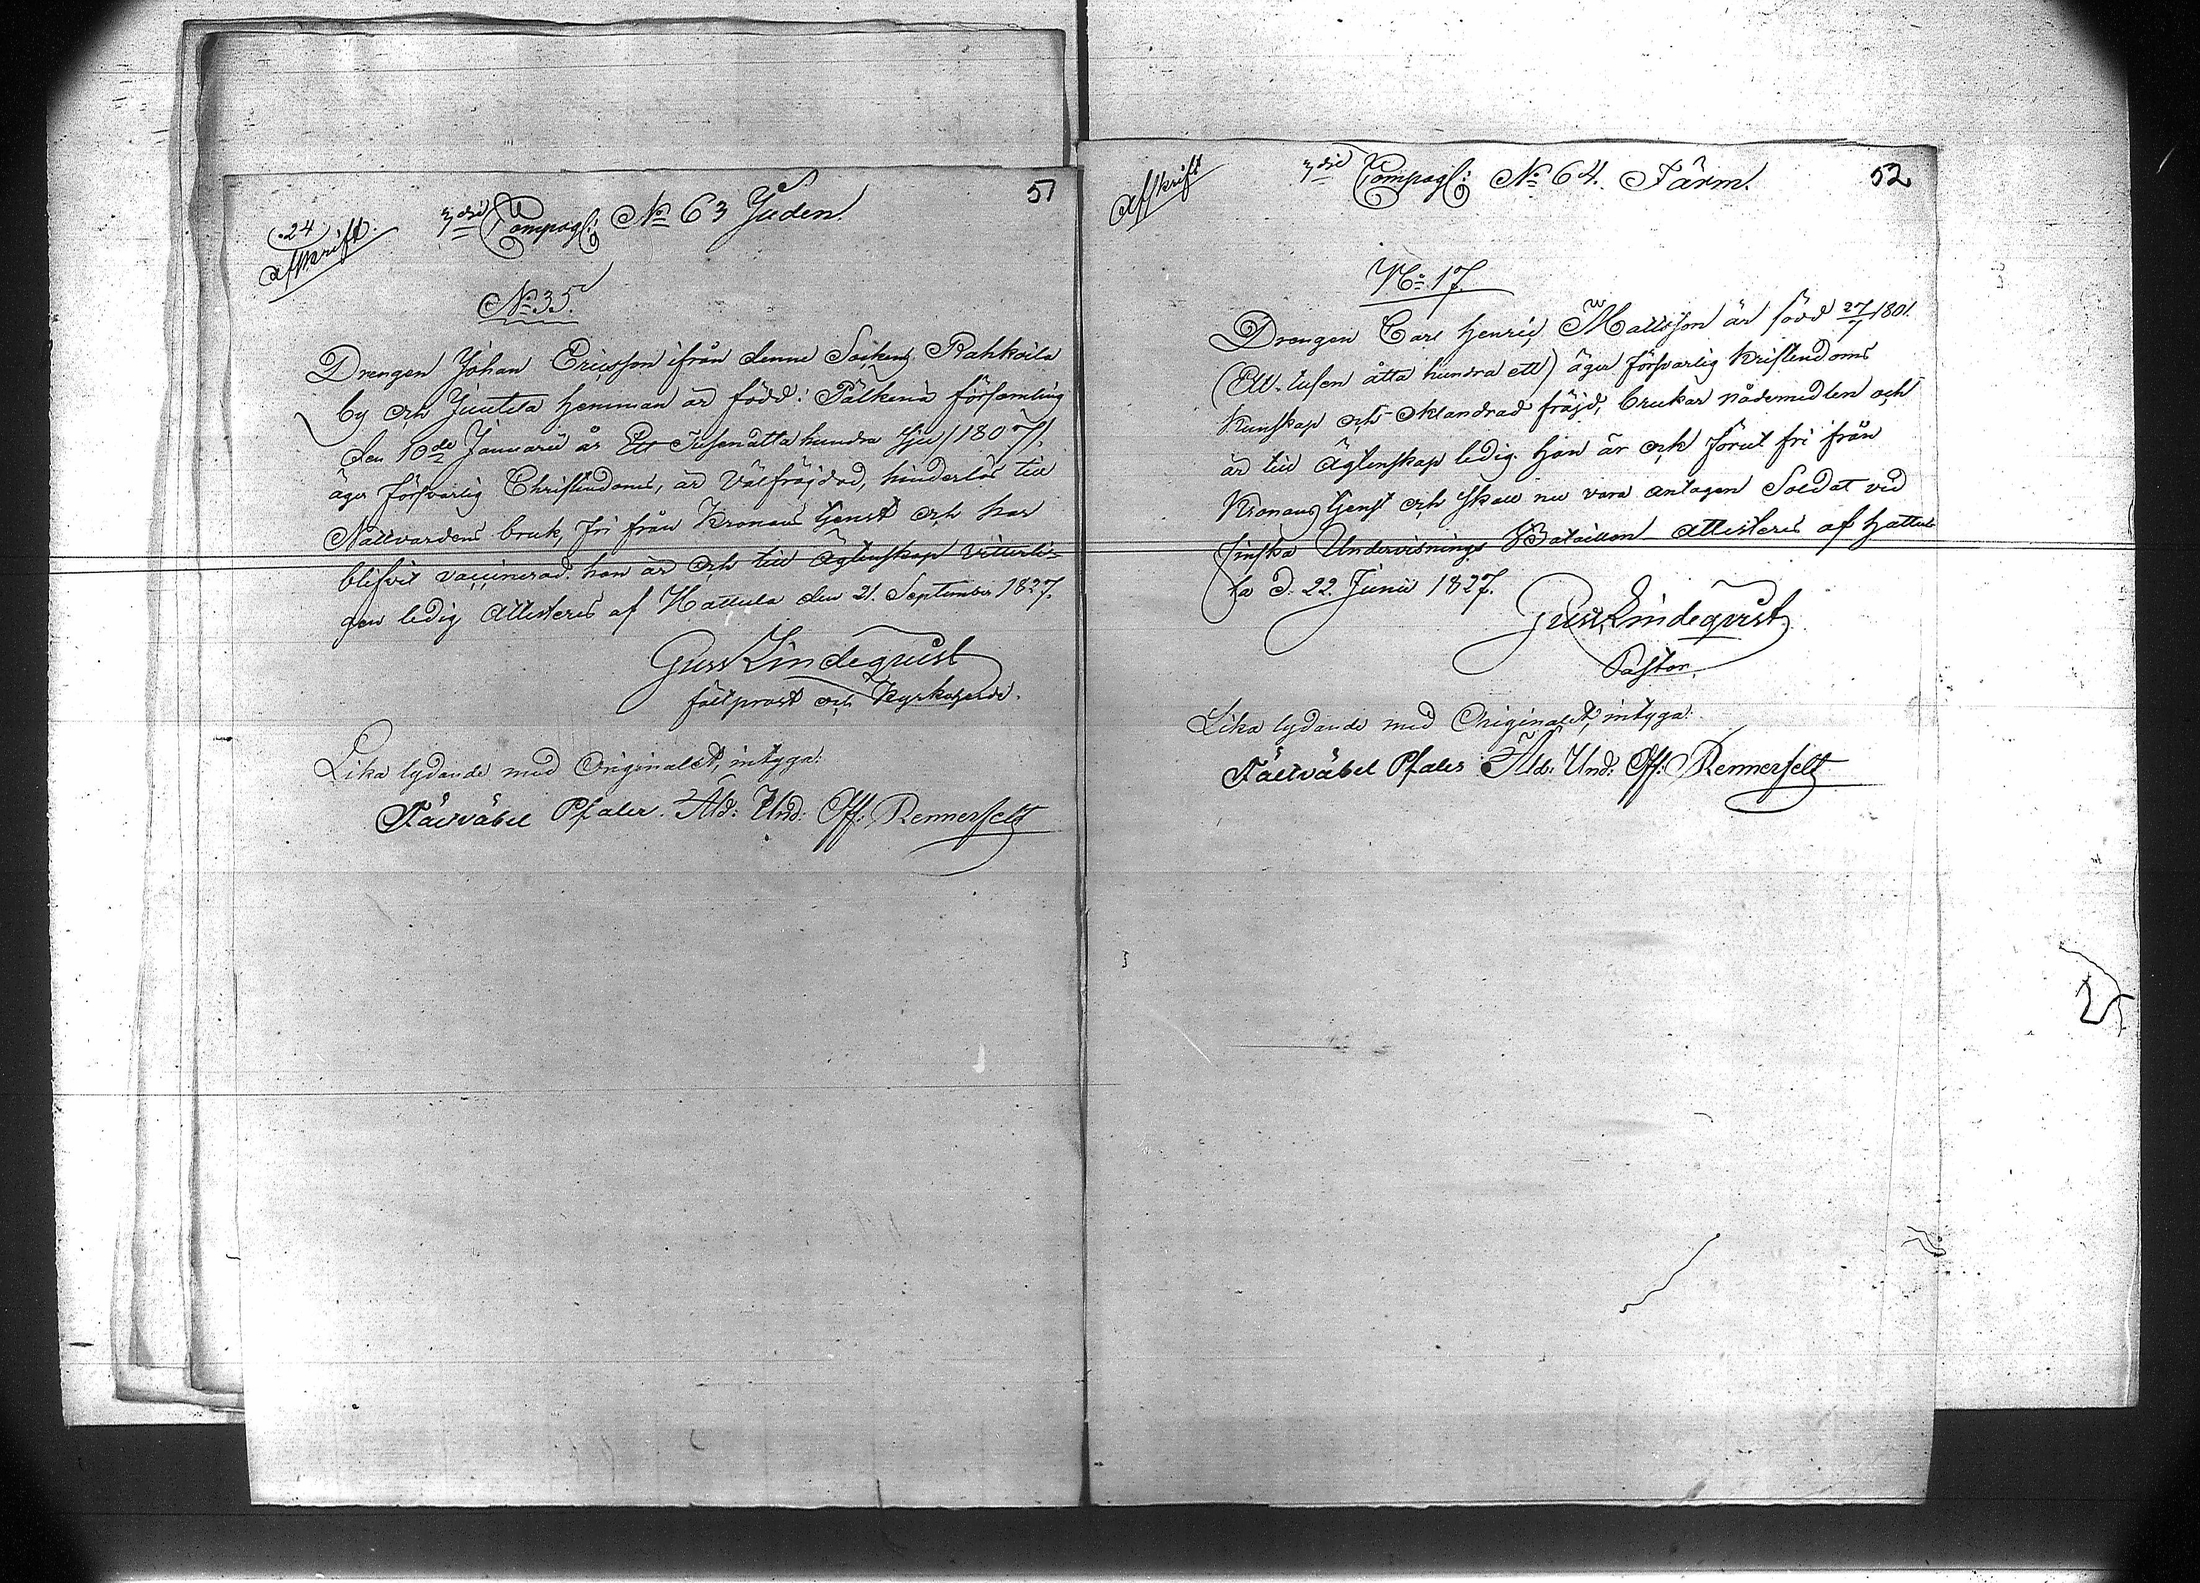 51
24
Afskrift.
3dje Compagl: No 63 Juden.
No 35.
Drengen Johan Ericsson ifrån denne Sockens Rahkoila
by och Juutila Hemman är född i Pälkene församling
den 10de Januarii år Ett Tusen åtta hundra sju /1807/.
äger försvarlig Christendoms, är välfräjdad, hinderlös till
Nattvardens bruk, fri från Kronans tjenst och har
blifvit vaccinerad. han är och till Ägtenskap vitterli-
gen ledig Attesteres af Hattula den 21. September 1827.
Gust Lindequist
fältprost och Kyrkoherde.
Lika lydande med Originalet, intyga:
Fältväbel Pfaler. Äld: Und: Off: Rennerfelt
52
Afskrift
3dje Compagl: No 64. Färm.
No 17.
Drengen Carl Henric Mattsson är född 27/7 1801.
(Ett tusen åtta hundra ett) äger försvarlig Kristendoms
Kunskap och oklandrad fräjd, brukar nådemedlen och
är till Ägtenskap ledig. Han är och förut fri från
Kronans tjenst och skall nu vara antagen Soldat vid
finska Undervisnings Bataillon Attesteres af Hattu-
la d. 22. Junii 1827.
Gust. Lindequist
Pastor.
Lika lydande med Originalet, intyga:
Fältväbel Pfaler Äld: Und: Off: Rennerfelt